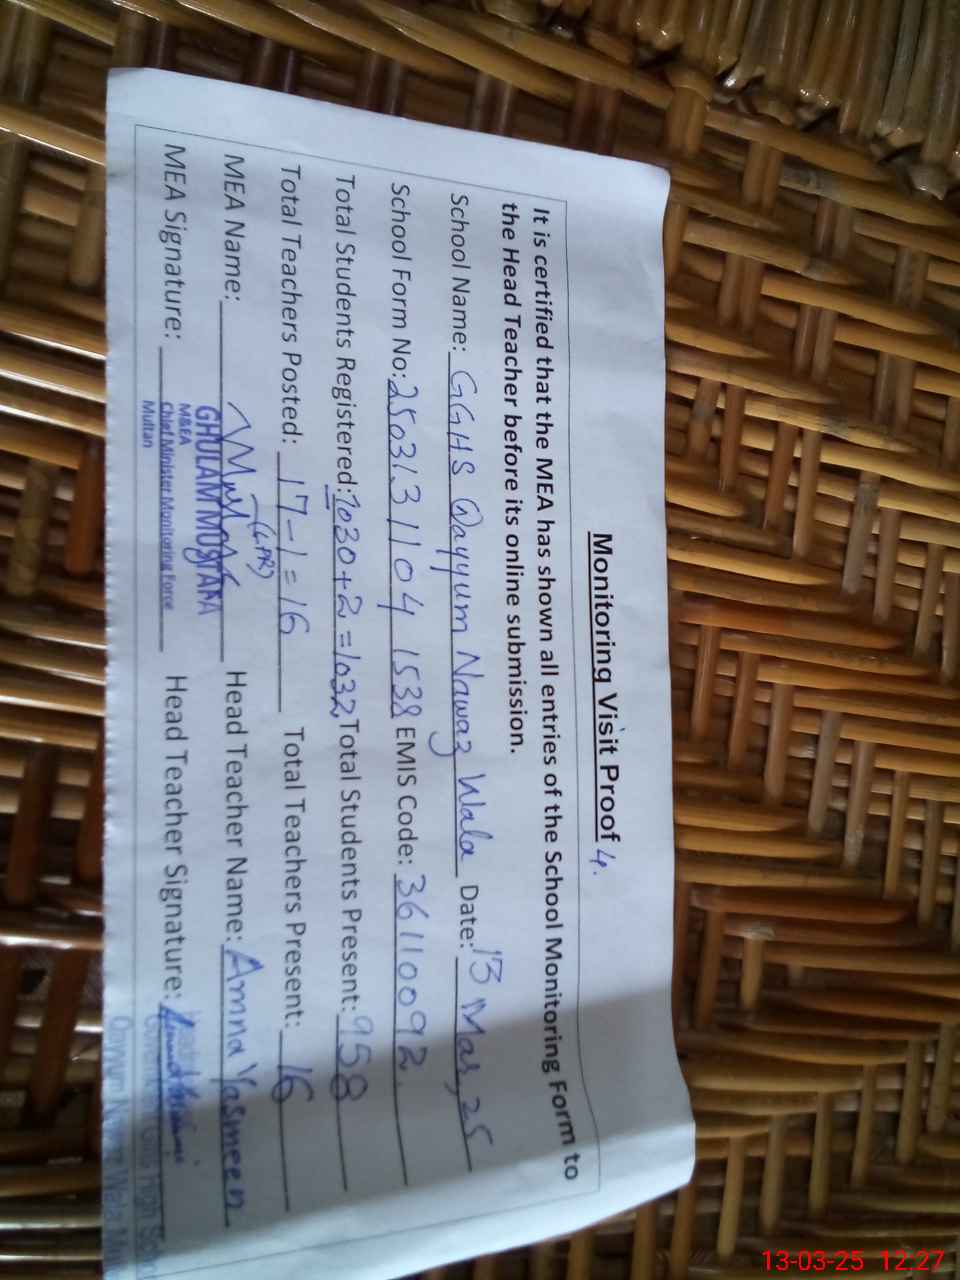 Monitoring Visit Proof 4.
It is certified that the MEA has shown all entries of the School Monitoring Form to
the Head Teacher before its online submission.
School Name: GGHS Qayyum Nawaz Wala Date: 13 Mar, 25
School Form No: 2503131104 1538 EMIS Code: 36110092.
Total Students Registered: 1030+2=1032 Total Students Present: 958
Total Teachers Posted: 17-1=16 Total Teachers Present: 16
MEA Name: Head Teacher Name: Amna Yasmeen
MEA Signature: Head Teacher Signature:
GHULAM MUSTAFA
M&EA
Chief Minister Monitoring Force
Multan
High
Nawaz Wala
13-03-25 12.27